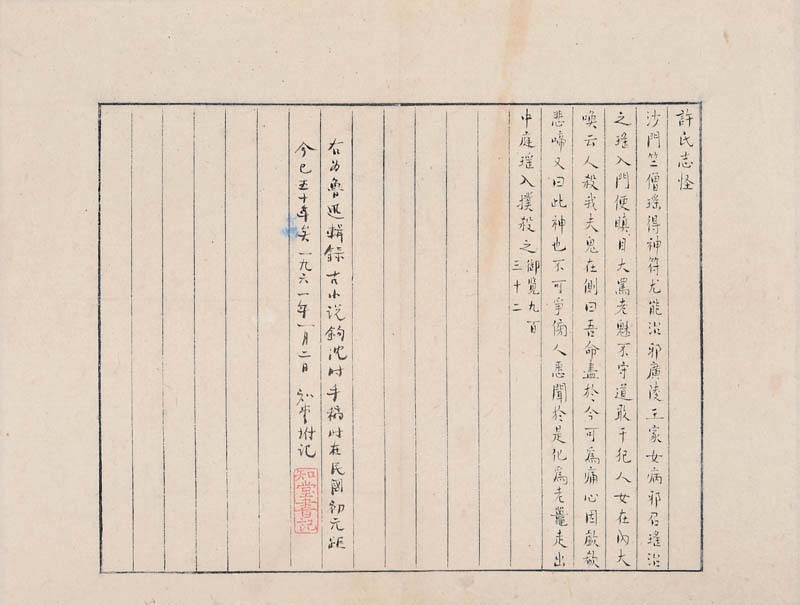 許氏志怪
沙門竺僧瑶得神符尤能治邪廣陵王家女病邪召瑤治
之瑤入門便瞋目大罵老魅不守道敢干犯人女在內大
喚云人殺我夫鬼在側曰吾命盡於今可爲痛心因歔欷
悲啼又曰此神也不可爭傍人悉聞於是化爲老鼉走出
中庭瑤入撲殺之御覽九百
三十二
右为魯迅輯録古小说鈎沈时手稿时在民國初元距
今已五十年矣一九六一年一月二日 知堂附记
知堂書記